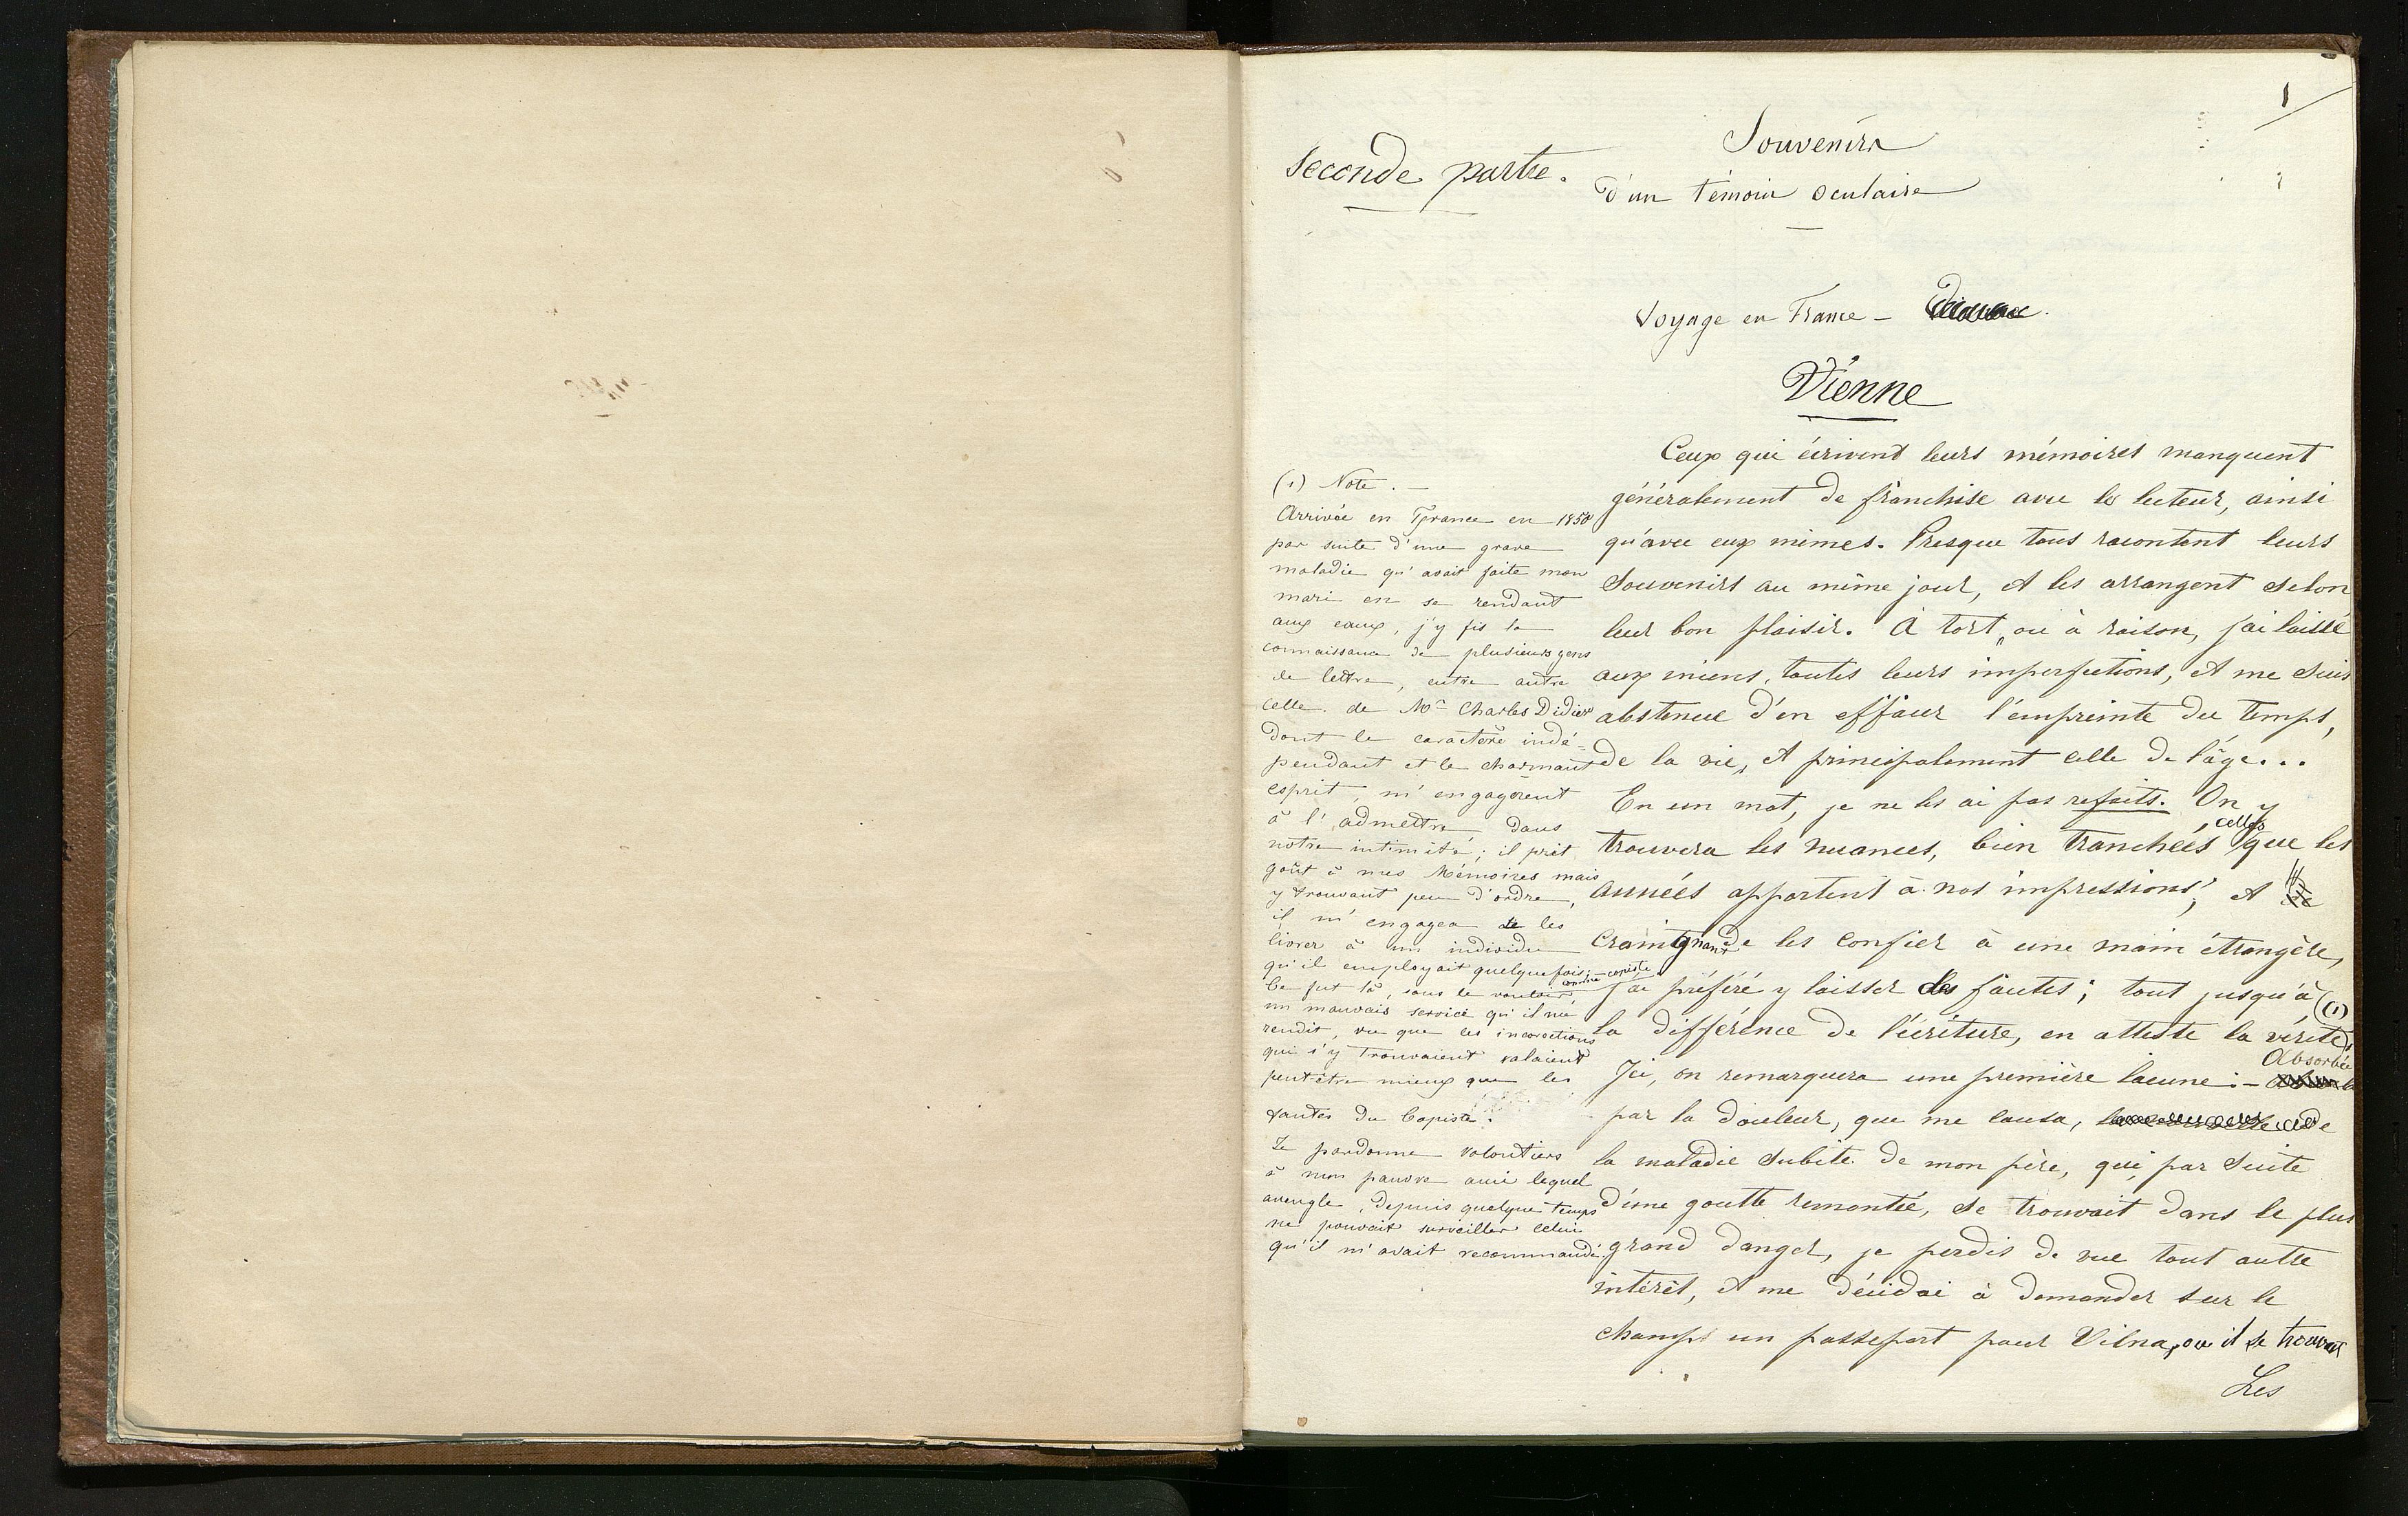 1
Seconde partie.
Souvenirs
d'un témoin oculaire
Voyage en France –
Vienne
Ceux qui écrivent leurs mémoires manquent
généralement de franchise avec le lecteur, ainsi
qu'avec eux mêmes. Presque tous racontent leurs
Souvenirs au même jour, et les arrangent selon
leur bon plaisir. À tort, ou à raison, j'ai laissé
aux miens, toutes leurs imperfections, et me suis
abstenue d'en effacer l'empreinte du temps,
de la vie, et principalement celle de l'âge...
En un mot, je ne les ai pas refaits. On y
trouvera les nuances, bien tranchées, celles que les
années apportent à nos impressions; et
craignant de les confier à une main étrangère,
j'ai préféré y laisser des fautes; tout jusqu'à
la différence de l'écriture, en atteste la vérité. (1)
Ici, on remarquera une première lacune: – Absorbée
par la douleur, que me causa, de
la maladie subite de mon père, qui, par suite
d'une goutte remontée, se trouvait dans le plus
grand danger, je perdis de vue tout autre
intérêt, et me décidai à demander sur le
champs un passeport pour Vilna, où il se trouvait
Les
(1) Note. –
Arrivée en France en 1850
par suite d'une grave
maladie qu'avait faite mon
mari en se rendant
aux eaux, j'y fis la
connaissance de plusieurs gens
de lettre, entre autre
celle de Mr Charles Didier
dont le caractère indé-
pendant et le charmant
esprit, m'engagèrent
à l'admettre dans
notre intimité; il prit
goût à mes Mémoires mais
y trouvant peu d'ordre,
il m'engagea de les
livrer à un individu
qu'il employait quelquefois comme copiste
Ce fut là, sans le vouloir
un mauvais service qu'il me
rendit, vu que les incorections
qui s'y trouvaient valaient
peut-être mieux que les
fautes du Copiste.
Je pardonne volontiers
à mon pauvre ami lequel
aveugle, depuis quelque temps
ne pouvait surveiller celui
qu'il m'avait recommandé.